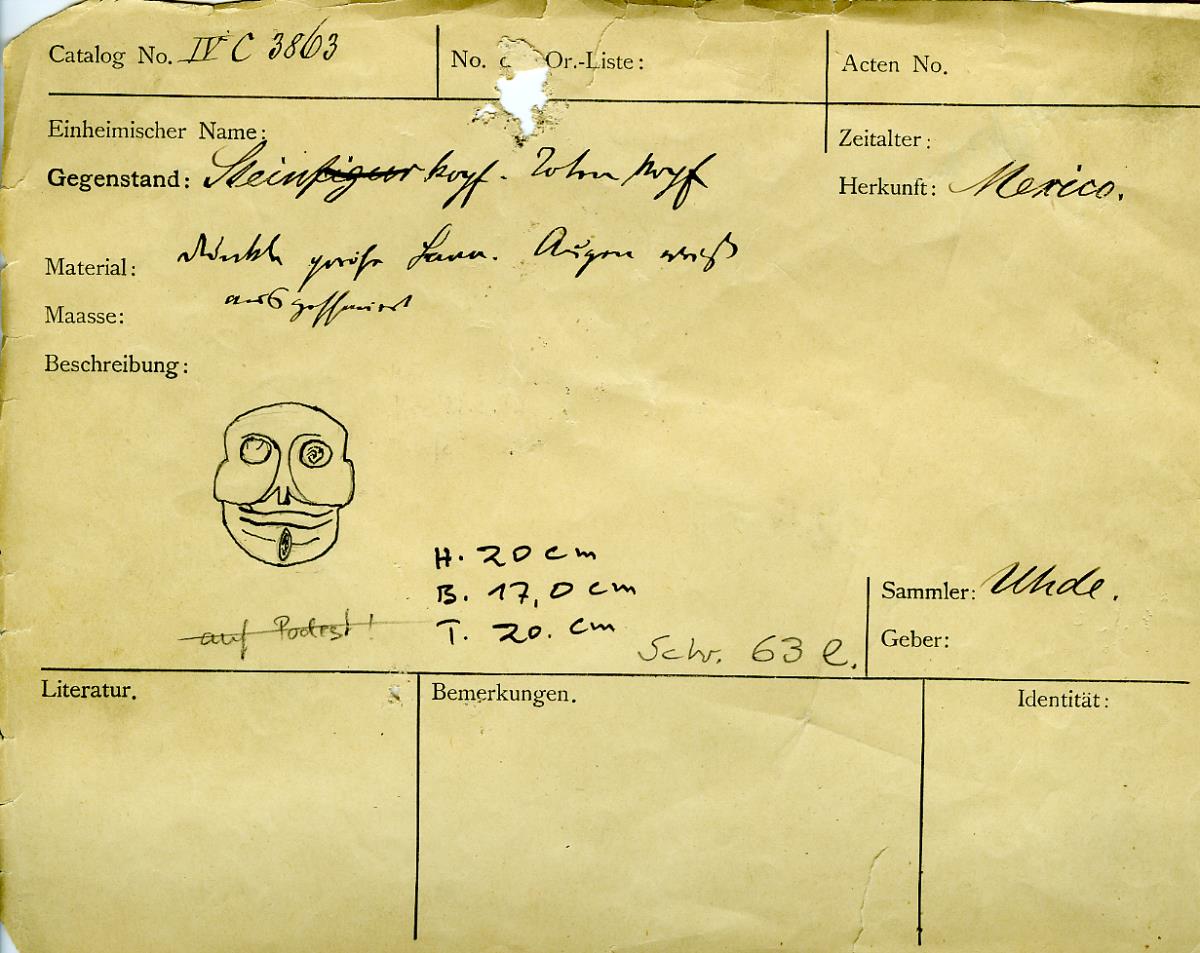 Catalog No. IV C 3863
No. d Or.-Liste:
Acten No.
Einheimischer Name:
Zeitalter:
Gegenstand: Steinfigur kopf. Toten Kopf
Herkunft: Mexico.
Material: dunkle poröse Lava. Augen weiß
ausgeschmiert
Maasse:
Beschreibung:
H. 20 cm
B. 17,0 cm
T. 20. cm
auf Podest!
Schr. 63 e.
Sammler: Uhde.
Geber:
Literatur.
Bemerkungen.
Identität: